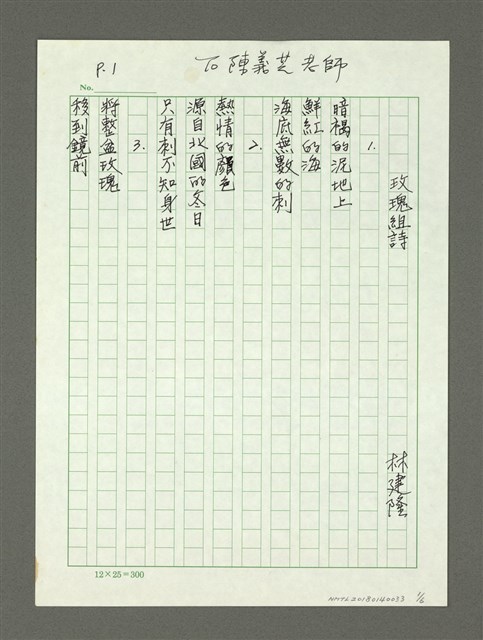 P.1
TO 陳義芝老師
No.
玫瑰組詩
林建隆
1.
暗褐的泥地上
鮮紅的海
海底無數的刺
2.
熱情的顏色
源自北國的冬日
只有刺不知身世
3.
將整盆玫瑰
移到鏡前
12×25=300
NMTL20180140033
1/6